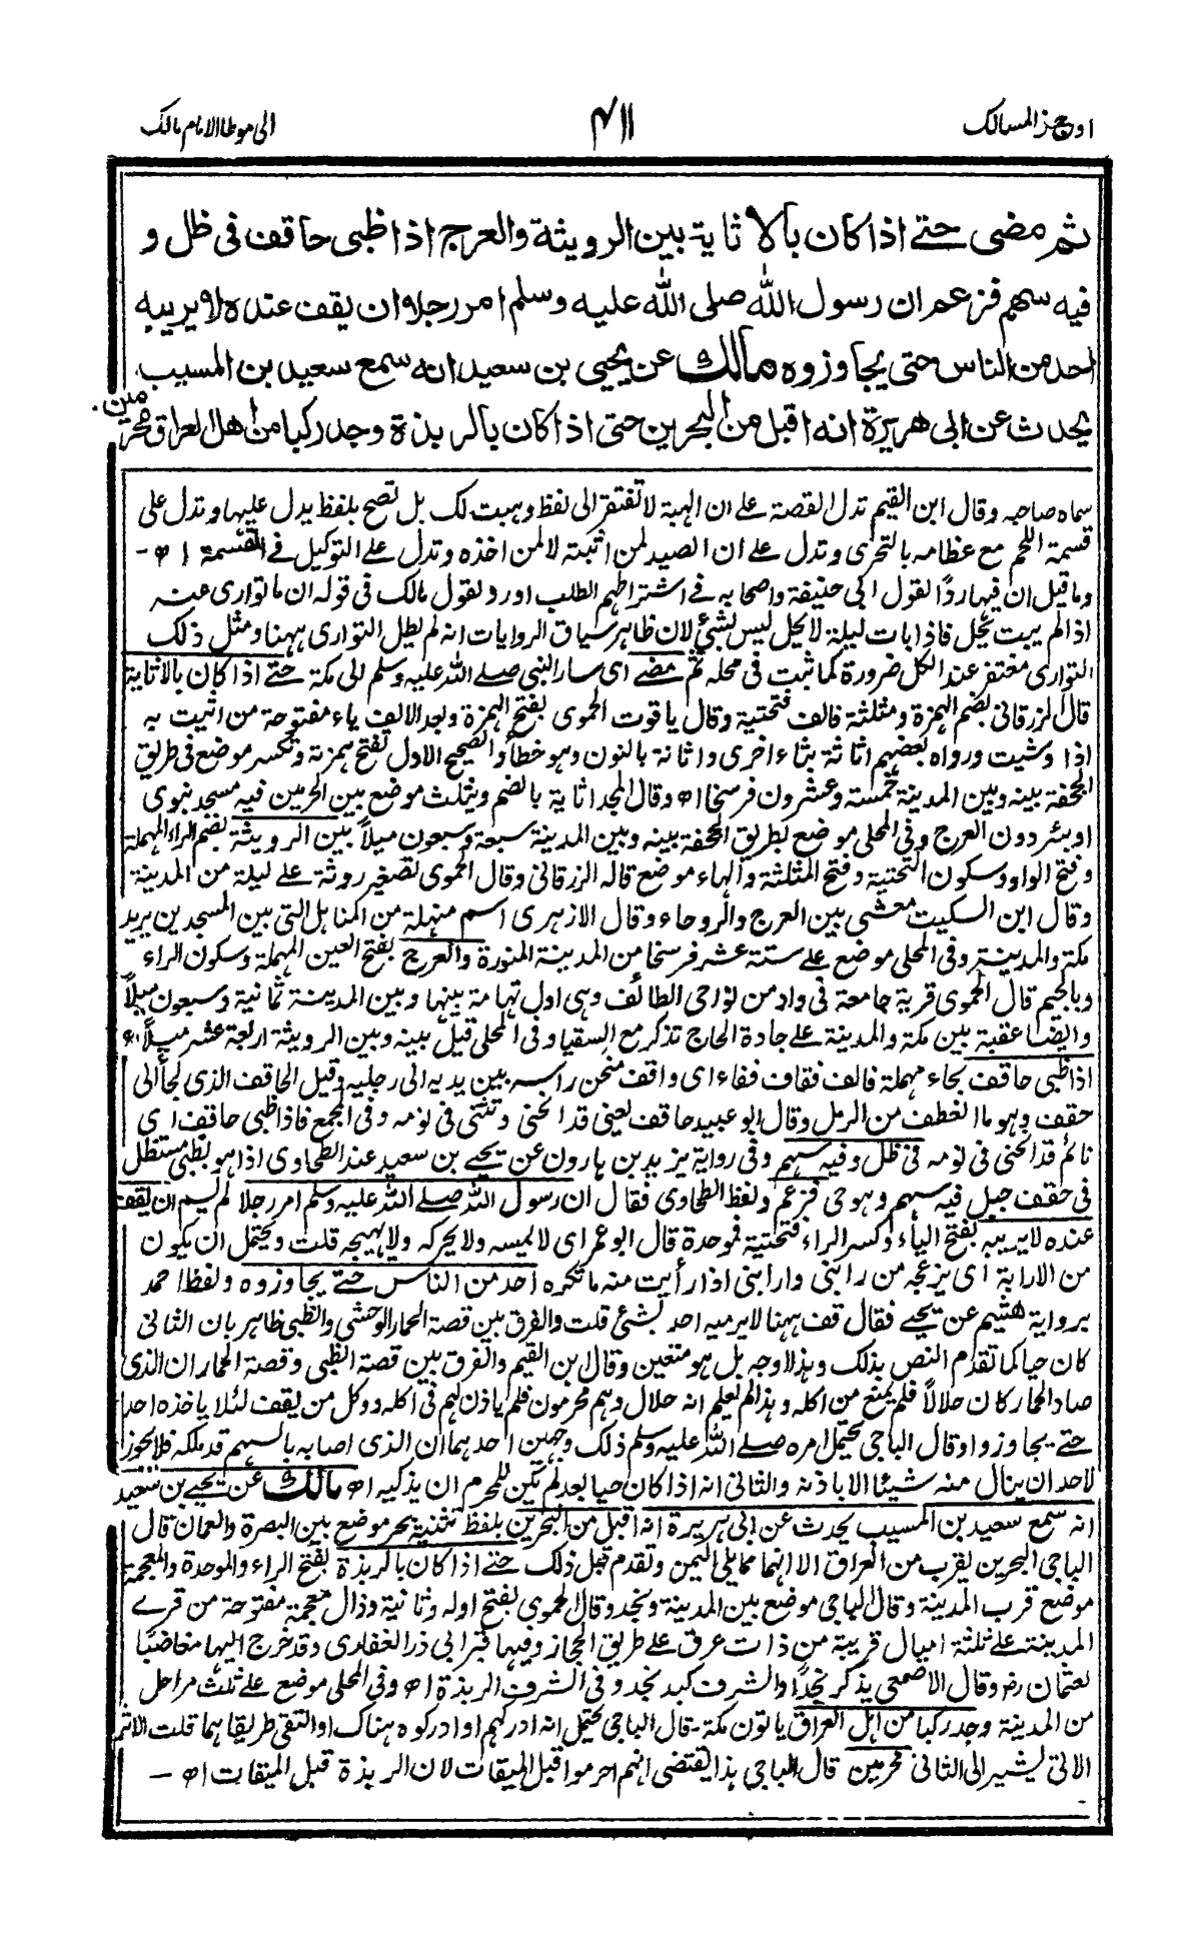 اوجز المسالك
٤١١
الى موطا الامام مالك
ثم مضى حتے اذا كان بالاثاية بين الرويثة والعرج اذا ظبى حاقف فى ظل و
فيه سهم فزعم ان رسول الله صلى الله عليه وسلم امر رجلا ان يقف عنده لا يريبه
احد من الناس حتى يجاوزوه مالك عن يحيى بن سعيد انه سمع سعيد بن المسيب
يحدث عن ابى هريرة انه اقبل من البحرين حتى اذا كان بالربذة وجد ركبا من اهل العراق محرمين
سماه صاحبه وقال ابن القيم تدل القصة على ان الهبة لا تفتقر الى لفظ وهبت لك بل تصح بلفظ يدل عليها وتدل على
قسمة اللحم مع عظامه بالتحرى وتدل على ان الصيد لمن اثبته لا لمن اخذه وتدل على التوكيل فى القسمة اھ -
وما قيل ان فيها ردًا لقول ابى حنيفة واصحابه فے اشتراطهم الطلب اورد لقول مالك فى قوله ان ما توارى عنه
اذا لم يبت يحل فاذا بات ليلة لا يحل ليس بشئ لان ظاهر سياق الروايات انه لم يطل التوارى ههنا ومثل ذلك
التوارى مغتفر عند الكل ضرورة كما ثبت فى محله ثم مضے اى سار النبى صلے الله عليه وسلم الى مكة حتے اذا كان بالاثاية
قال الزرقانى بضم الهمزة ومثلثة فالف فتحتية وقال ياقوت الحموى بفتح الهمزة وبعد الالف ياء مفتوحة من اثيت به
اذا وشيت ورواه بعضهم اثاثة بثاء اخرى واثانة بالنون وهو خطأ والصحيح الاول تفتح همزته وتكسر موضع فى طريق
الجحفة بينه وبين المدينة خمسة وعشرون فرسخا اھ وقال المجد اثاية بالضم ويثلث موضع بين الحرمين فيه مسجد نبوى
او بئر دون العرج وفى المحلى موضع بطريق الجحفة بينه وبين المدينة سبعة وسبعون ميلاً بين الرويثة بضم الراء المهملة
وفتح الواو وسكون التحتية وفتح المثلثة والهاء موضع قاله الزرقانى وقال الحموى تصغير روثة على ليلة من المدينة
وقال ابن السكيت معشى بين العرج والروحاء وقال الازهرى اسم منهلة من المناهل التى بين المسجدين يريد
مكة والمدينة وفى المحلى موضع على ستة عشر فرسخا من المدينة المنورة والعرج بفتح العين المهملة وسكون الراء
وبالجيم قال الحموى قرية جامعة فى واد من نواحى الطائف وهى اول تهامة بينها وبين المدينة ثمانية وسبعون ميلاً
وايضا عقبة بين مكة والمدينة على جادة الحاج تذكر مع السقيا وفى المحلى قيل بينه وبين الرويثة اربعة عشر ميلاً اھ
اذا ظبى حاقف بحاء مهملة فالف فقاف ففاء اى واقف منحن راسه بين يديه الى رجليه وقيل الحاقف الذى لجأ الى
حقف وهو ما انعطف من الرمل وقال ابو عبيد حاقف يعنى قد انحنى وتثنى فى نومه وفى المجمع فاذا ظبى حاقف اى
نائم قد انحنى فى نومه فى ظل وفيه سهم وفى رواية يزيد بن هارون عن يحيے بن سعيد عند الطحاوى اذا هو بظبى مستظل
فى حقف جبل فيه سهم وهو حى فزعم ولفظ الطحاوى فقال ان رسول الله صلے الله عليه وسلم امر رجلا لم يسم ان يقف
عنده لا يريبه بفتح الياء وكسر الراء فتحتية فموحدة قال ابو عمر اى لا يمسه ولا يحركه ولا يهيجه قلت ويحتمل ان يكون
من الارابة اى يزعجه من رابنى وارابنى اذا رأيت منه ما تكره احد من الناس حتے يجاوزوه ولفظ احمد
برواية هشيم عن يحيے فقال قف ههنا لا يرميه احد بشئ قلت والفرق بين قصة الحمار الوحشى والظبى ظاهر بان الثانى
كان حيا كما تقدم النص بذلك وبذا لاوجه بل هو متعين وقال ابن القيم والفرق بين قصة الظبى وقصة الحمار ان الذى
صاد الحمار كان حلالاً فلم يمنع من اكله وهذا لم يعلم انه حلال وهم محرمون فلم ياذن لهم فى اكله ووكل من يقف لئلا ياخذه احد
حتے يجاوزوا وقال الباجى يحتمل امره صلے الله عليه وسلم ذلك وجهين احدهما ان الذى اصابه بالسهم قد ملكه فلا يجوز
لاحد ان ينال منه شيئا الا باذنه والثانى انه اذا كان حيا بعد لم يكن للمحرم ان يذكيه اھ مالك عن يحيے بن سعيد
انه سمع سعيد بن المسيب يحدث عن ابى هريرة انه اقبل من البحرين بلفظ تثنية بحر موضع بين البصرة والعمان قال
الباجى البحرين يقرب من العراق الا انها مما يلى اليمن وتقدم قبل ذلك حتے اذا كان بالربذة بفتح الراء والموحدة والمعجمة
موضع قرب المدينة وقال الباجى موضع بين المدينة ونجد وقال الحموى بفتح اوله وثانية وذال معجمة مفتوحة من قرے
المدينة على ثلثة اميال قريبة من ذات عرق على طريق الحجاز وفيها قبر ابى ذر الغفارى وقد خرج اليها مغاضبا
لعثمان رض وقال الاصمعى يذكر نجدًا والشرف كبد نجد وفى الشرف الربذة اھ وفى المحلى موضع على ثلث مراحل
من المدينة وجد ركبا من اهل العراق ياتون مكة - قال الباجى يحتمل انه ادركهم او ادركوه هناك او التقى طريقاهما قلت الاثر
الاتى يشير الى الثانى محرمين قال الباجى هذا يقتضى انهم احرموا قبل الميقات لان الربذة قبل الميقات اھ -